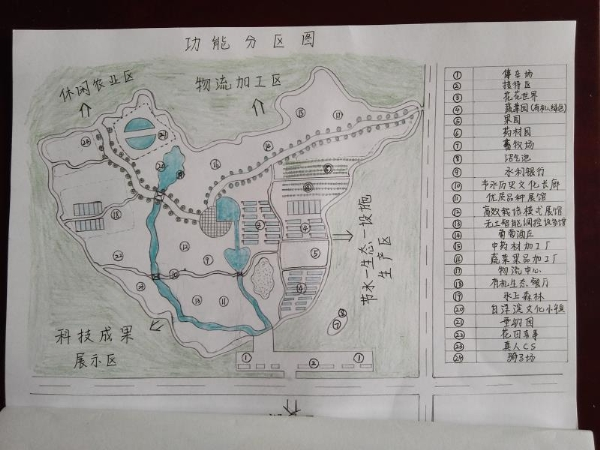 功能分区图
休闲农业区
物流加工区
节水—生态—设施
生产区
科技成果
展示区
① 停车场
② 接待区
③ 花花世界
④ 蔬菜园(有机、绿色)
⑤ 果园
⑥ 药材园
⑦ 畜牧场
⑧ 沼气池
⑨ 水利银行
⑩ 节水历史文化长廊
⑪ 优质品种展馆
⑫ 高效栽培模式展馆
⑬ 无土智能调控设备馆
⑭ 葡萄酒庄
⑮ 中药材加工厂
⑯ 蔬菜果品加工厂
⑰ 物流中心
⑱ 有机生态餐厅
⑲ 水上森林
⑳ 文化小镇
㉑ 景韵园
㉒ 花田喜事
㉓ 真人CS
㉔ 狮子场